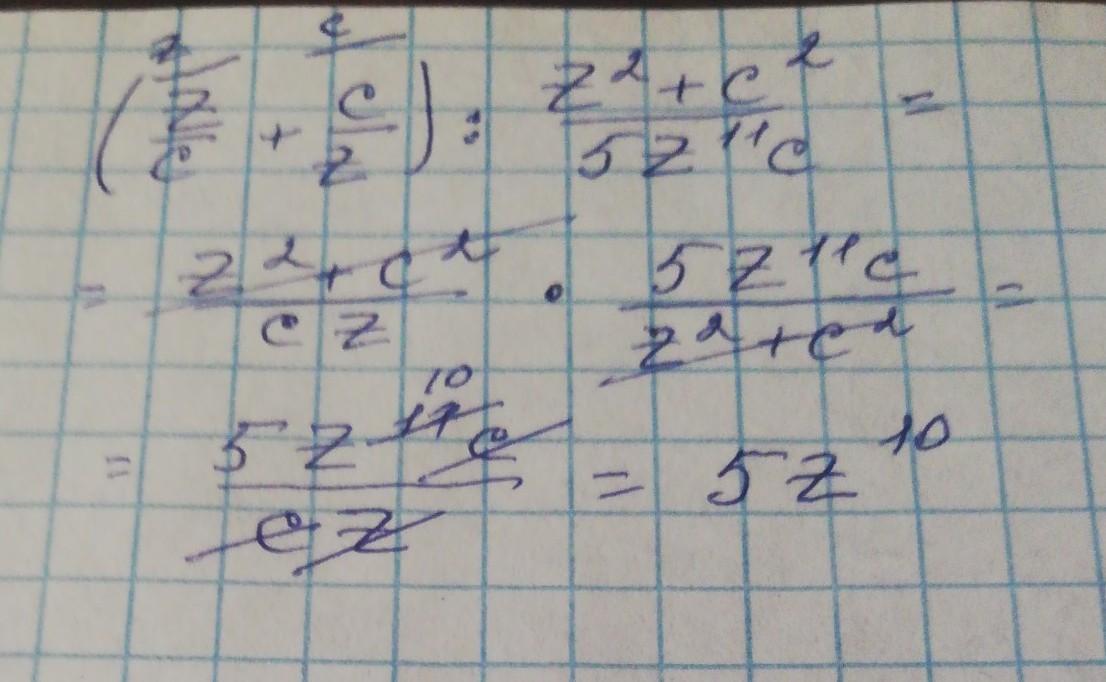 (z/c + c/z) : (z² + c²)/(5z¹¹c) =
= (z² + c²)/(cz) · (5z¹¹c)/(z² + c²) =
= (5z¹¹ ¹⁰c)/(cz) = 5z¹⁰